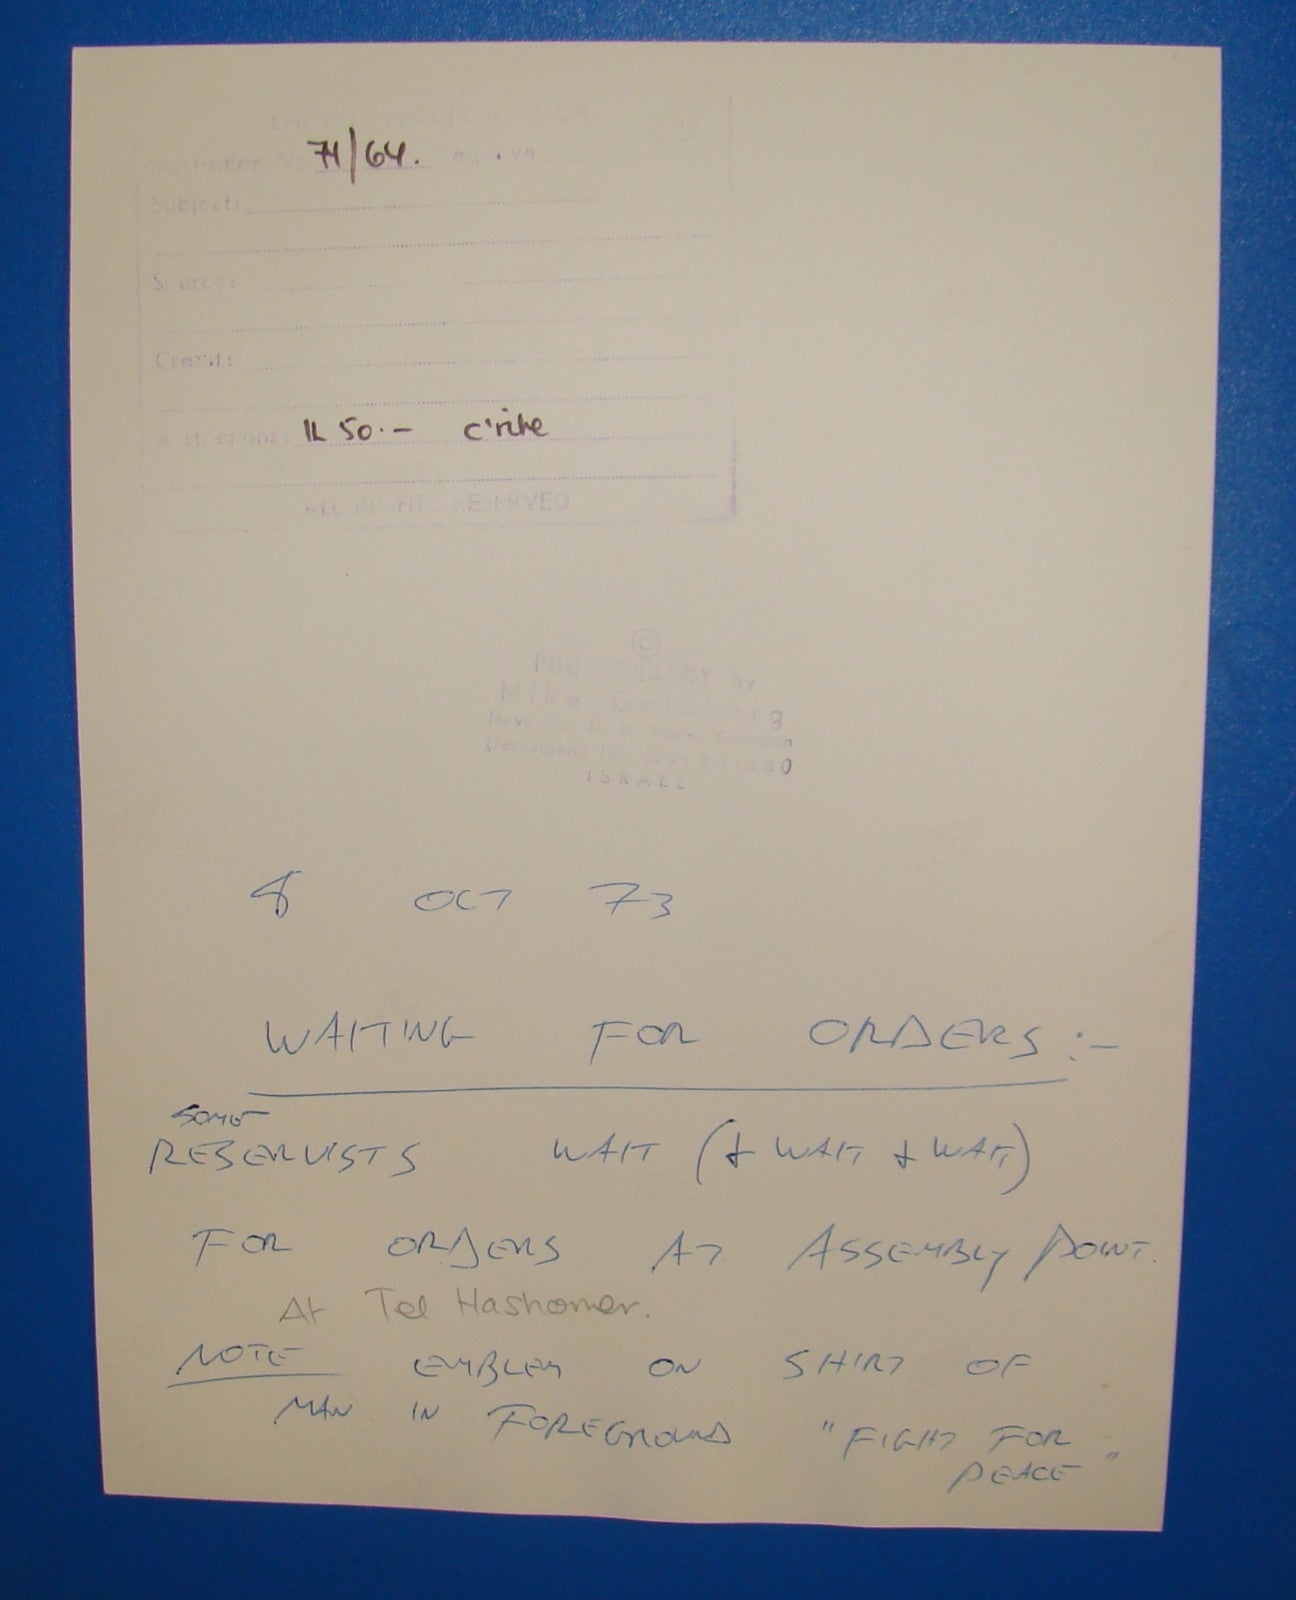 74/64.
Subject:
Source:
Credit:
IL 50.- c'rite
ALL RIGHTS RESERVED
©
PHOTOGRAPHY by
Mike Goldberg
ISRAEL
8 OCT 73
WAITING FOR ORDERS:-
SOME
RESERVISTS WAIT (& WAIT & WAIT)
FOR ORDERS AT ASSEMBLY POINT.
At Tel Hashomer.
NOTE EMBLEM ON SHIRT OF
MAN IN FOREGROUND "FIGHT FOR
PEACE"